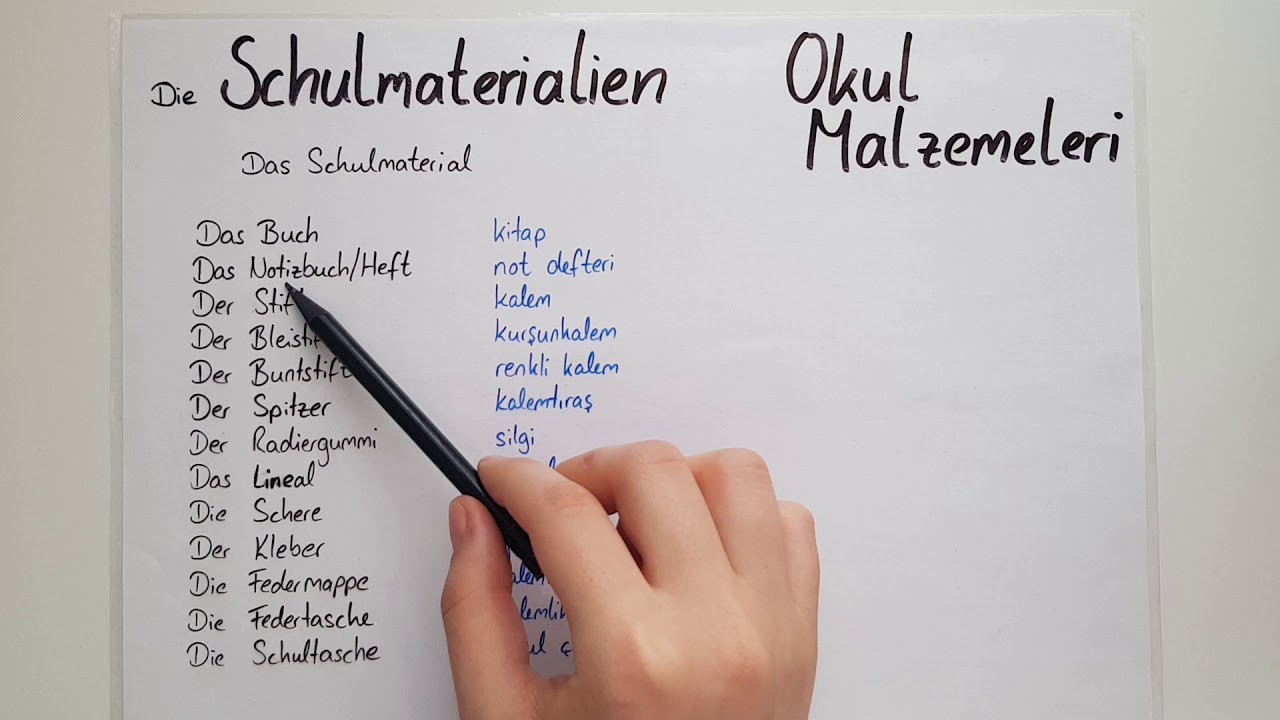 Die Schulmaterialien
Okul
Malzemeleri
Das Schulmaterial
Das Buch kitap
Das Notizbuch/Heft not defteri
Der kalem
Der kurşunkalem
Der Buntstift renkli kalem
Der Spitzer kalemtıraş
Der Radiergummi silgi
Das Lineal
Die Schere
Der Kleber
Die Federmappe
Die Federtasche
Die Schultasche